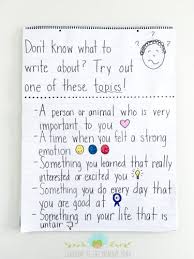 Don't Know what to
write about? Try out
one of these topics!
- A person or animal who is very
important to you
- A time when you felt a strong
emotion
- Something you learned that really
interested or excited you
- Something you do every day that
you are good at
- Something in your life that is
unfair